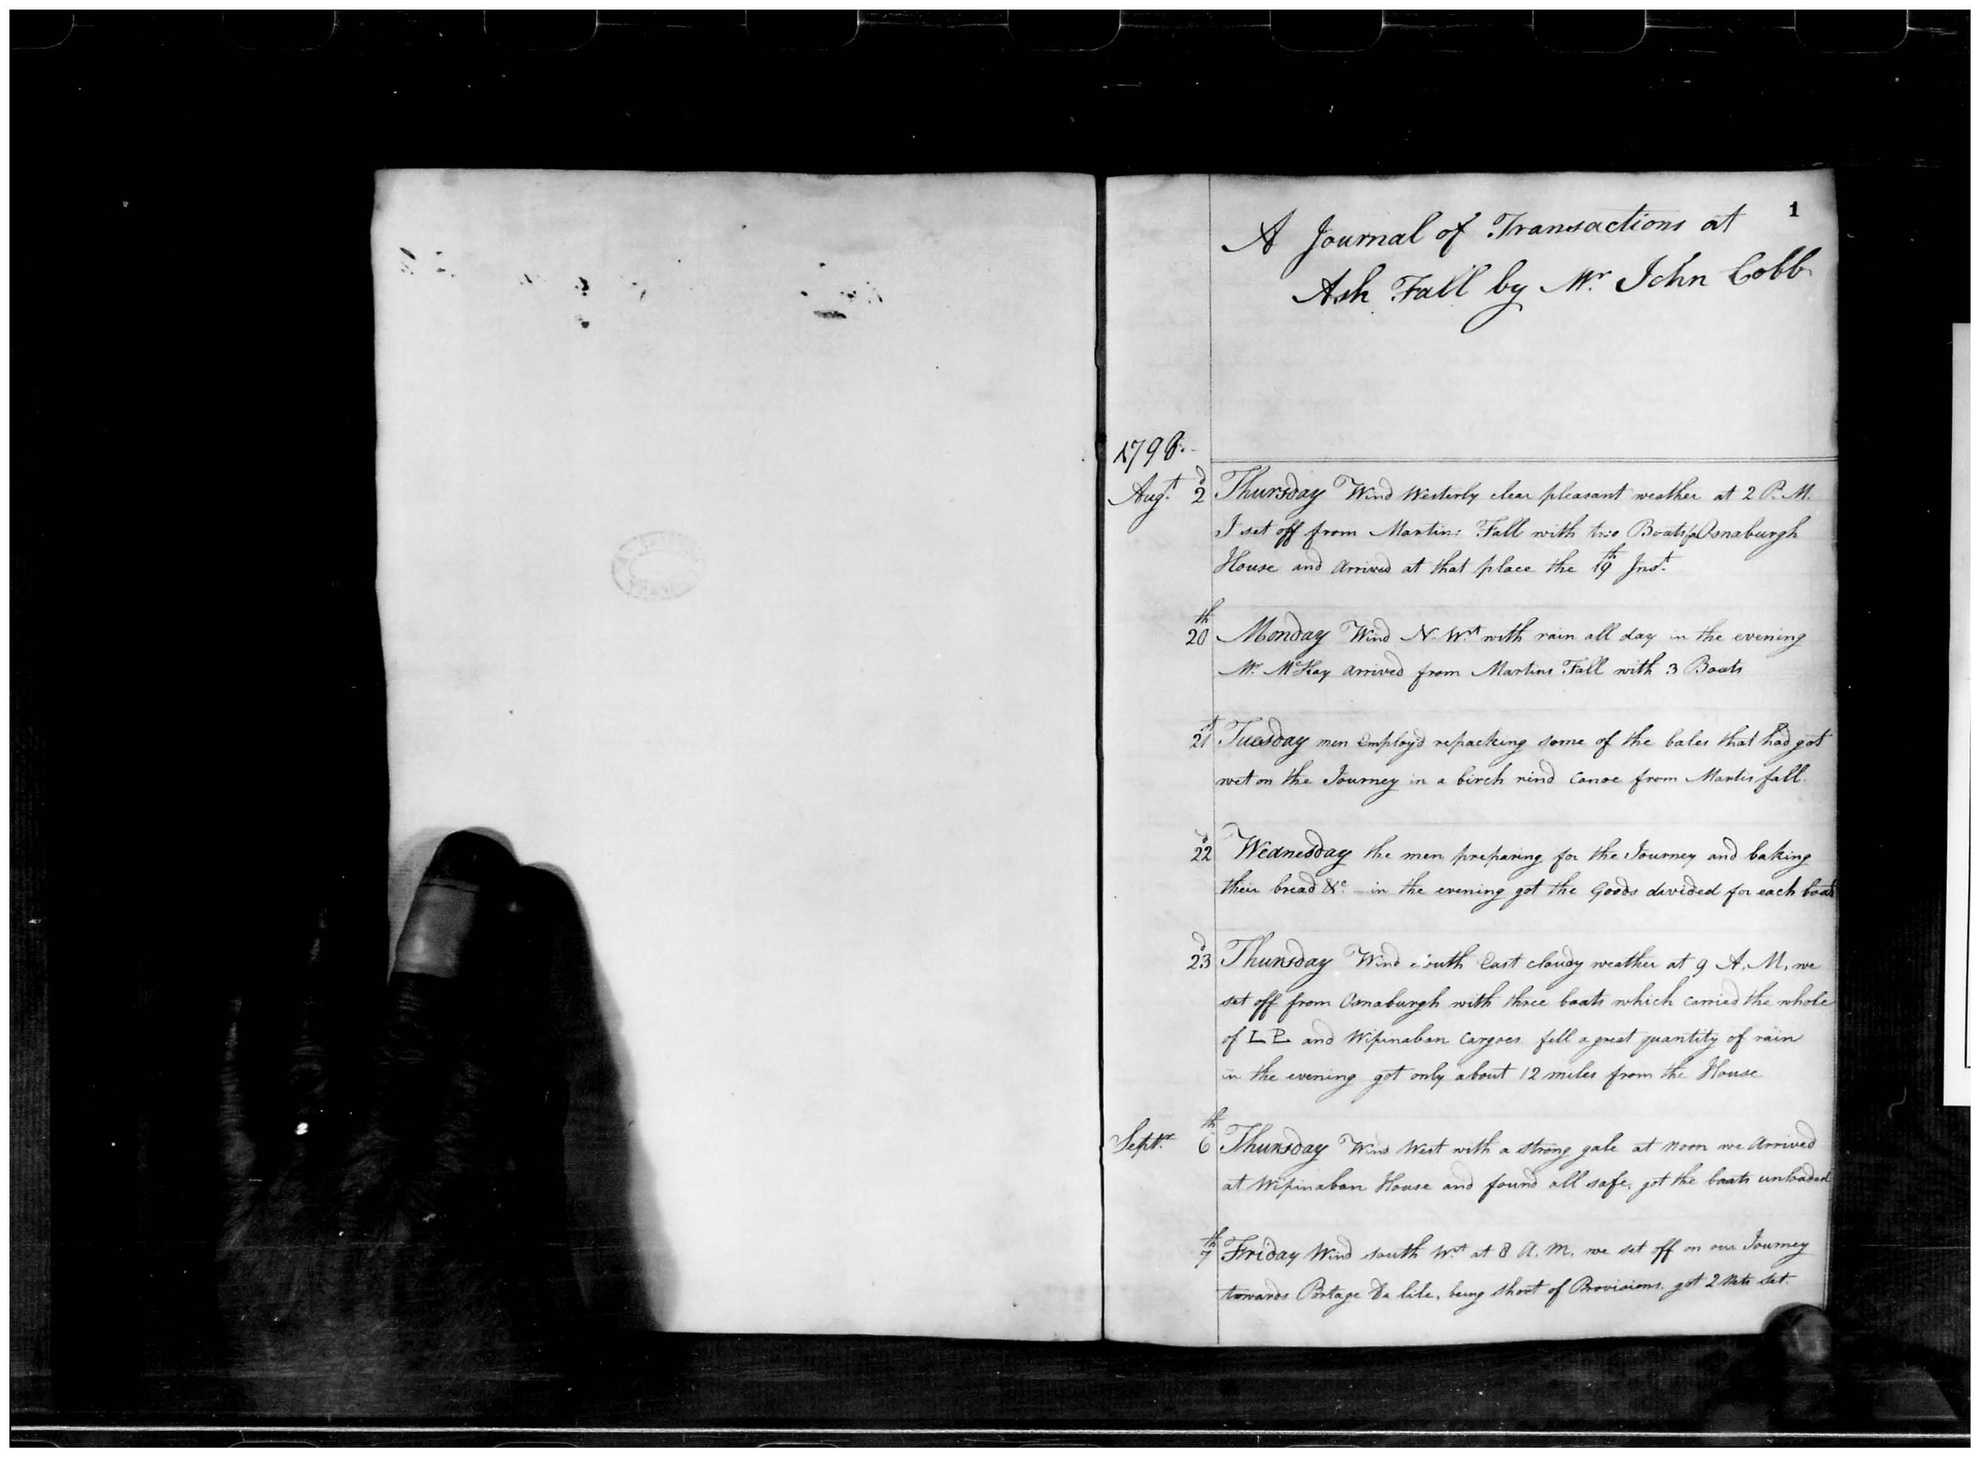 1
A Journal of Transactions at
Ash Fall by Mr. John Cobb
1798.
Augt. 2d Thursday Wind Westerly clear pleasant weather at 2 P.M.
I set off from Martins Fall with two Boats for Osnaburgh
House and arrived at that place the 19th Inst.
20th Monday Wind N. Wt. with rain all day in the evening
Mr. McKay arrived from Martins Fall with 3 Boats
21st Tuesday men employ'd repacking some of the bales that had got
wet on the Journey in a birch rind canoe from Martis fall.
22d Wednesday the men preparing for the Journey and baking
their bread &c. in the evening got the Goods divided for each boat
23d Thursday Wind South East cloudy weather at 9 A.M. we
set off from Osnaburgh with three boats which carried the whole
of L P and Wipinaban Cargoes fell a great quantity of rain
in the evening got only about 12 miles from the House
Septr. 6th Thursday Wind West with a strong gale at noon we arrived
at Wipinaban House and found all safe, got the boats unloaded
7th Friday Wind south Wt. at 8 A.M. we set off on our Journey
towards Portage De lile, being short of Provisions, got 2 Nets set.